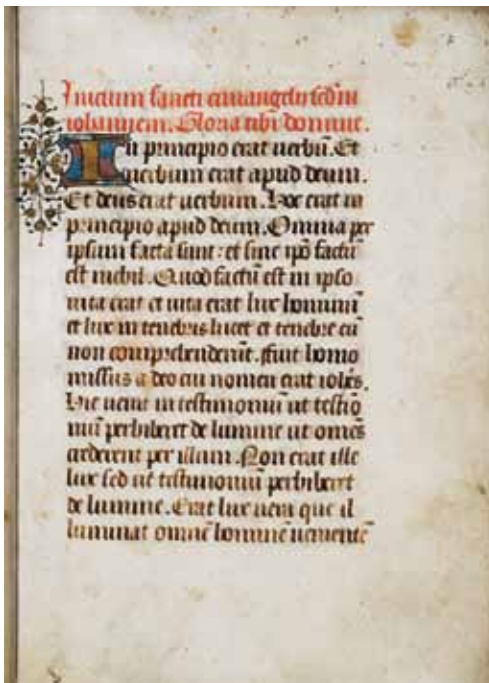 Inicium sancti euuangelij scdm
iohannem. Gloria tibi domine.
In principio erat uerbū. Et
uerbum erat apud deum.
Et deus erat uerbum. Hoc erat in
principio apud deum. Omnia per
ipsum facta sunt: et sine ipō factū
est nichil. Quod factū est in ipso
uita erat et uita erat lux hominum
et lux in tenebris lucet et tenebre eā
non comprehenderūt. ffuit homo
missus a deo cui nomen erat iohēs.
Hic uenit in testimoniū ut testio
niū perhiberet de lumine ut omēs
crederent per illum. Non erat ille
lux sed ut testimoniū perhiberet
de lumine. Erat lux uera que il
luminat omnē hominē uenientē